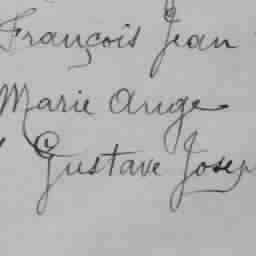 François Jean
Marie Ange
Gustave Josep